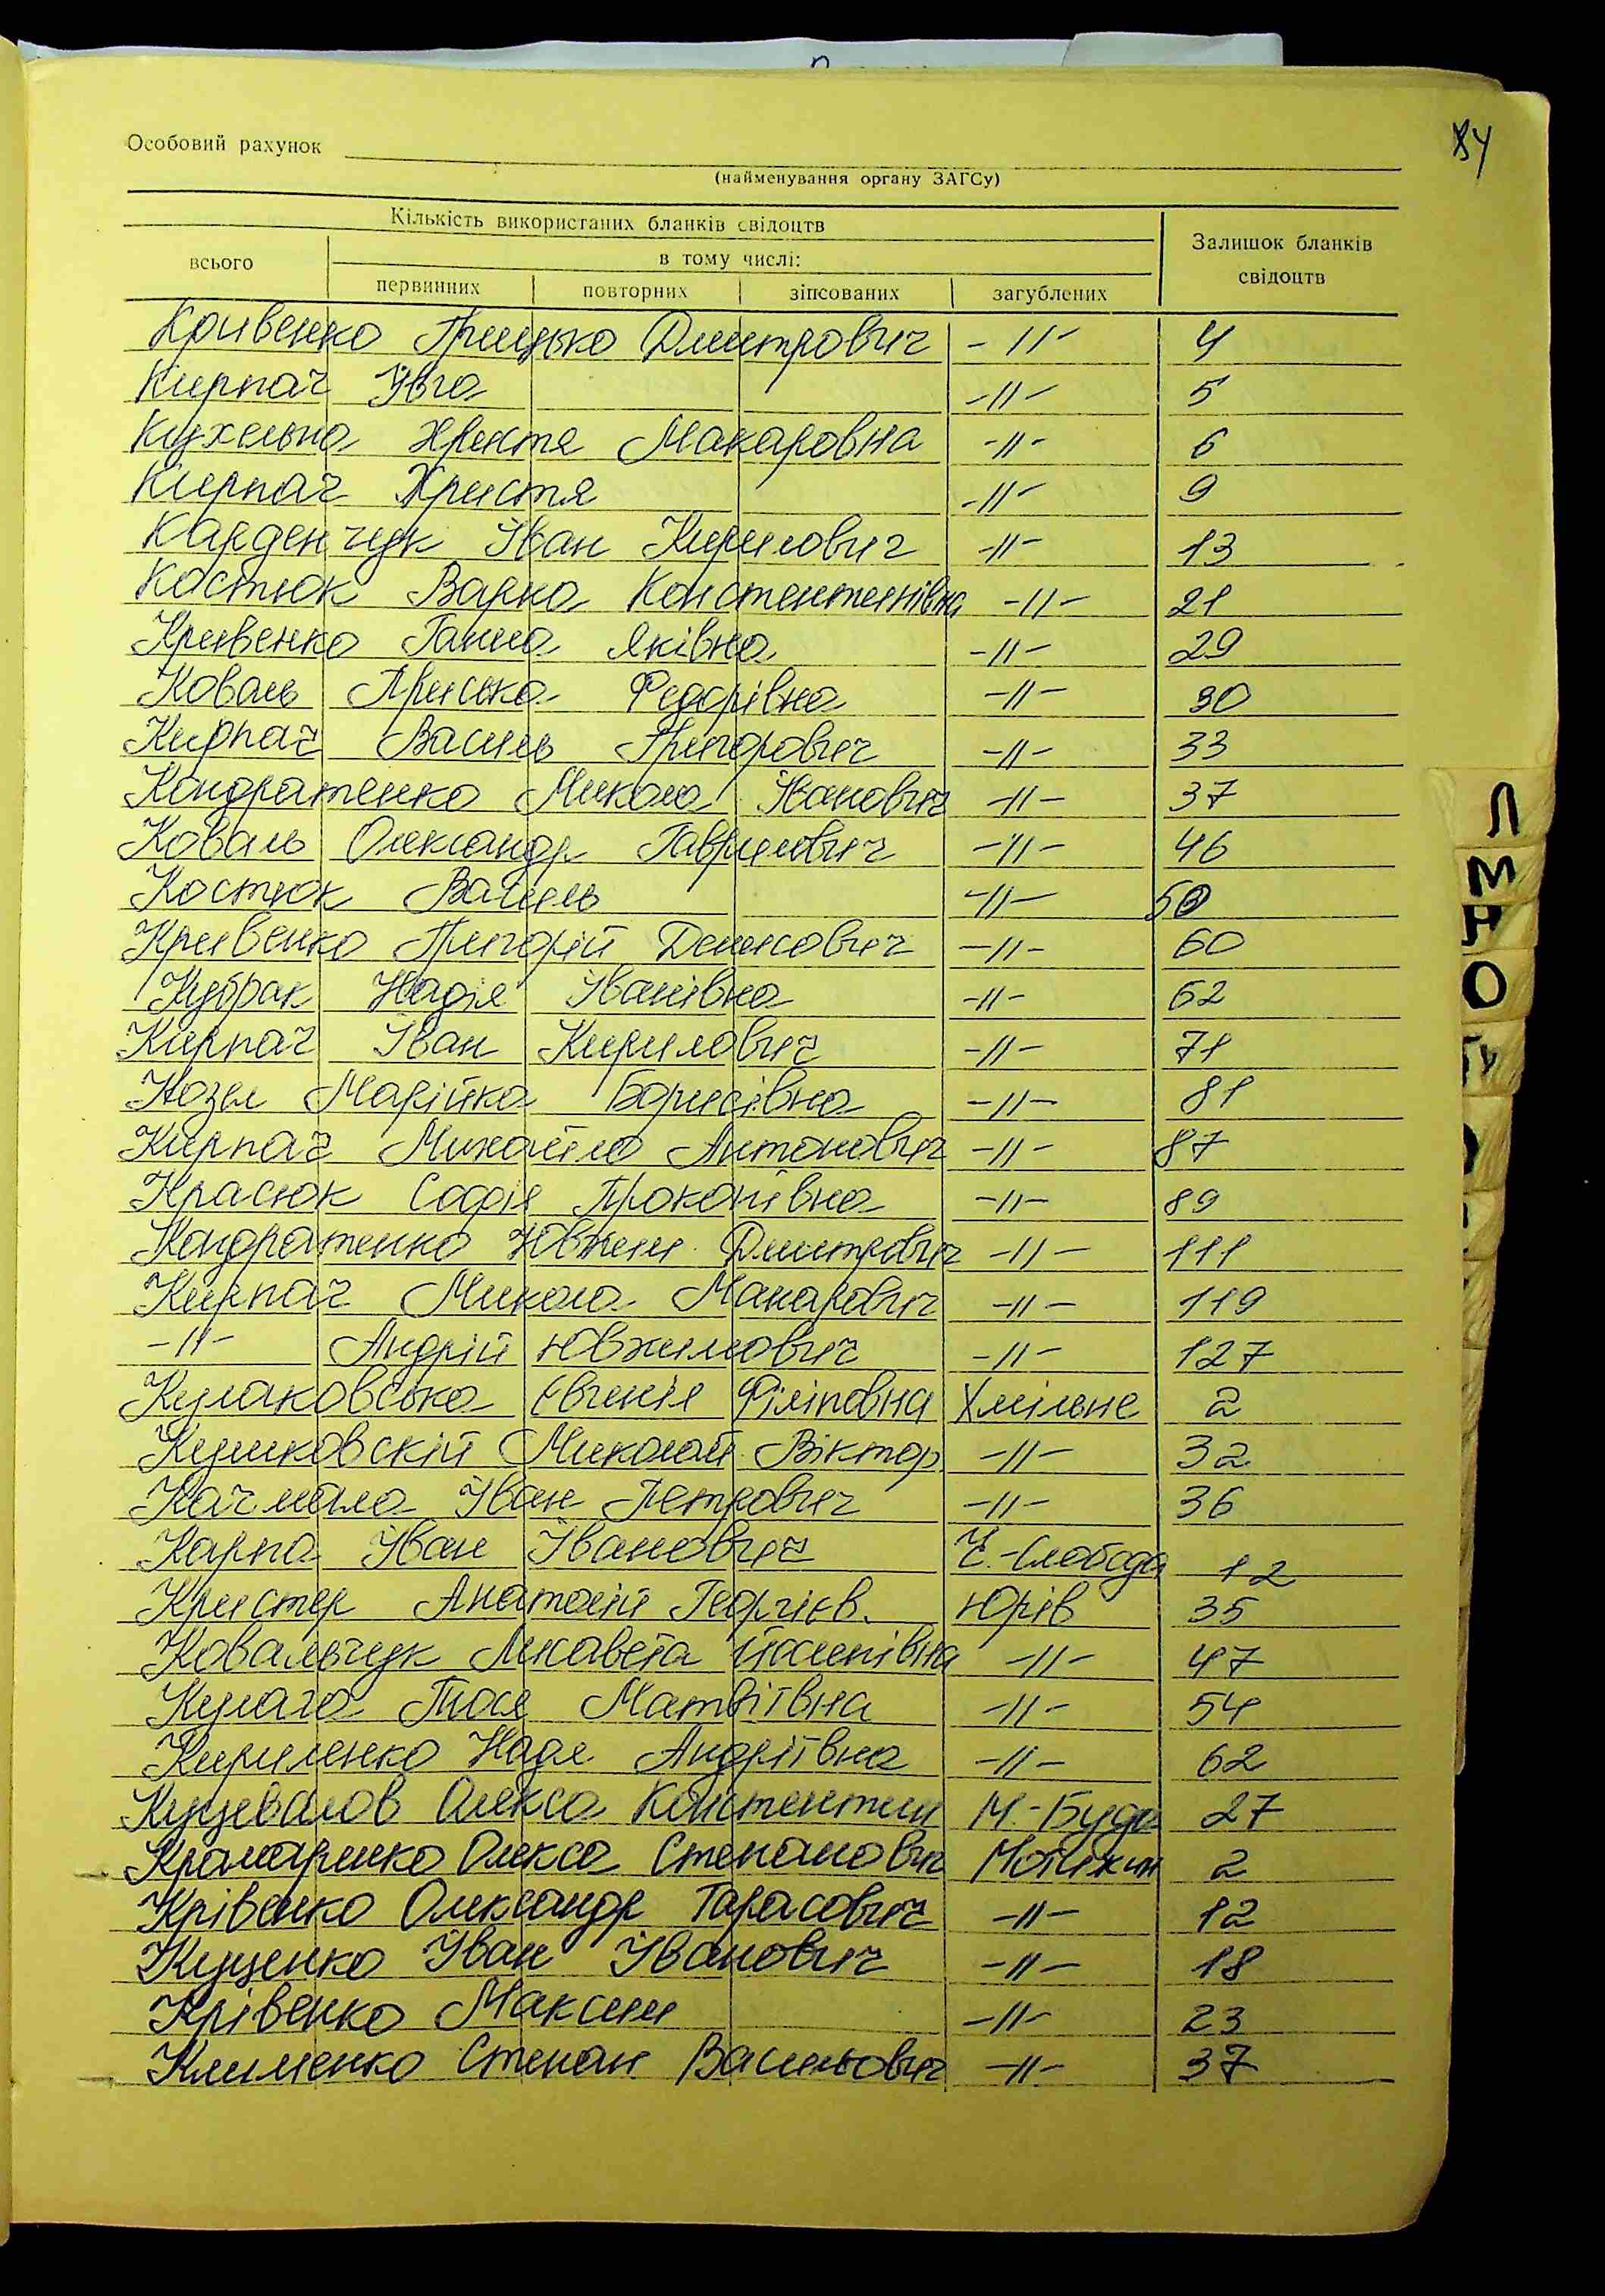 84
Особовий рахунок
(найменування органу ЗАГСу)
Кількість використаних бланків свідоцтв
Залишок бланків свідоцтв
всього
в тому числі:
первинних повторних зіпсованих загублених
Кривенко Грицько Дмитрович -//- 4
Кирпач Ївга -//- 5
Кухельна Христя Макаровна -//- 6
Кирпач Христя -//- 9
Карденчук Іван Кирилович -//- 13
Костюк Варка Констентинівна -//- 21
Кривенко Ганна Яківна -//- 29
Коваль Приська Федорівна -//- 30
Кирпач Василь Григорович -//- 33
Кондратенко Микола Іванович -//- 37
Коваль Олександр Гаврилович -//- 46
Костюк Василь -//- 50
Кривенко Григорій Денисович -//- 60
Кубрак Надія Іванівна -//- 62
Кирпач Іван Кирилович -//- 71
Козел Марійка Борисівна -//- 81
Кирпач Михайло Антонович -//- 87
Красюк Софія Прокопівна -//- 89
Кондратенко Ювжим Дмитрович -//- 111
Кирпач Микола Макарович -//- 119
-//- Андрій Ювжимович -//- 127
Кулаковська Євгенія Філіповна Хмільне 2
Миколай Віктор. -//- 32
Качмала Іван Петрович -//- 36
Карпа Іван Іванович Ч.-Слобода 12
Кристер Анатолій Георгієв. Юрів 35
Ковальчук Лисавета Йосипівна -//- 47
Кулага Тося Матвіївна -//- 54
Кириленко Надя Андріївна -//- 62
Куцевалов Олекса Констентин М.-Буда 27
Крамаренко Олекса Степанович Мотижин 2
Крівенко Олександр Тарасович -//- 12
Куценко Іван Іванович -//- 18
Крівенко Максим -//- 23
Клименко Степан Васильович -//- 37
Л
М
Н
О